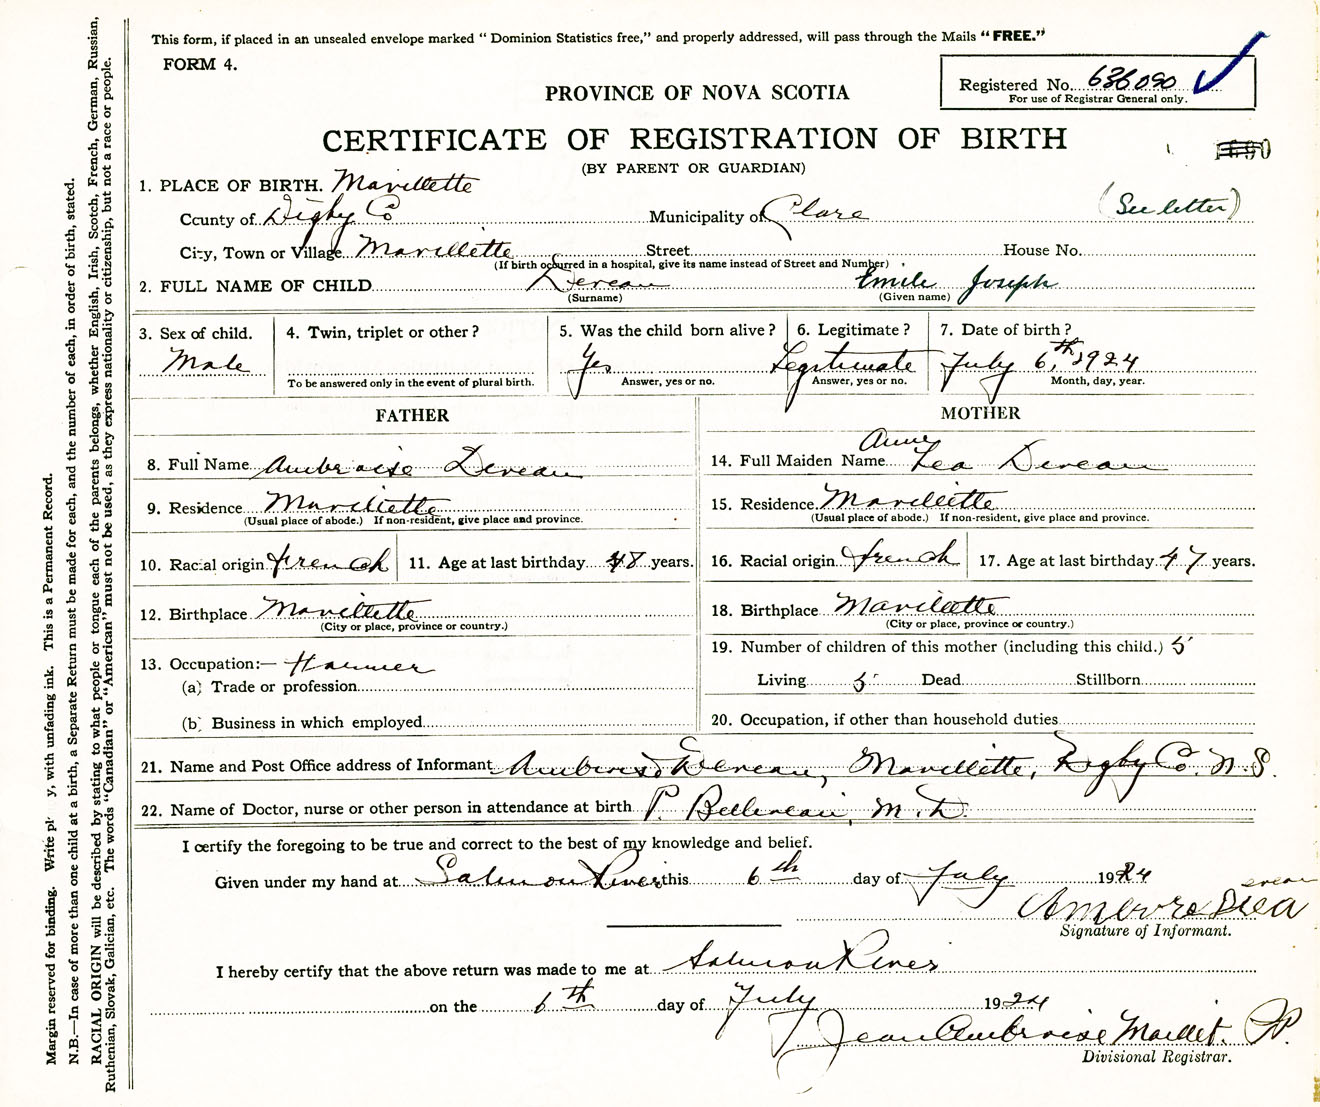 This form, if placed in an unsealed envelope marked " Dominion Statistics free," and properly addressed, will pass through the Mails "FREE."
FORM 4.
Registered No. 636090
For use of Registrar General only.
PROVINCE OF NOVA SCOTIA
CERTIFICATE OF REGISTRATION OF BIRTH
(BY PARENT OR GUARDIAN)
1. PLACE OF BIRTH. Mavillette
County of Digby Co Municipality of Clare (See letter)
City, Town or Village Mavillette Street House No.
(If birth occurred in a hospital, give its name instead of Street and Number)
2. FULL NAME OF CHILD Deveau Emile Joseph
(Surname) (Given name)
3. Sex of child. 4. Twin, triplet or other? 5. Was the child born alive? 6. Legitimate? 7. Date of birth?
Male Yes Legitimate July 6th, 1924
To be answered only in the event of plural birth. Answer, yes or no. Answer, yes or no. Month, day, year.
FATHER
8. Full Name Ambroise Deveau
9. Residence Mavillette
(Usual place of abode.) If non-resident, give place and province.
10. Racial origin french 11. Age at last birthday 48 years.
12. Birthplace Mavillette
(City or place, province or country.)
13. Occupation:— Farmer
(a) Trade or profession
(b) Business in which employed
MOTHER
Anne
14. Full Maiden Name Lea Deveau
15. Residence Mavillette
(Usual place of abode.) If non-resident, give place and province.
16. Racial origin french 17. Age at last birthday 47 years.
18. Birthplace Mavillette
(City or place, province or country.)
19. Number of children of this mother (including this child.) 5
Living 5 Dead Stillborn
20. Occupation, if other than household duties
21. Name and Post Office address of Informant Ambroise Deveau, Mavillette, Digby Co. N.S.
22. Name of Doctor, nurse or other person in attendance at birth P. Belliveau, M.D.
I certify the foregoing to be true and correct to the best of my knowledge and belief.
Given under my hand at Salmon River this 6th day of July 1924
Signature of Informant.
I hereby certify that the above return was made to me at Salmon River
on the 6th day of July 1924
Jean Ambroise Maillet. PP.
Divisional Registrar.
Margin reserved for binding. Write plainly, with unfading ink. This is a Permanent Record.
N.B.—In case of more than one child at a birth, a Separate Return must be made for each, and the number of each, in order of birth, stated.
RACIAL ORIGIN will be described by stating to what people or tongue each of the parents belongs, whether English, Irish, Scotch, French, German, Russian,
Ruthenian, Slovak, Galician, etc. The words "Canadian" or "American" must not be used, as they express nationality or citizenship, but not a race or people.